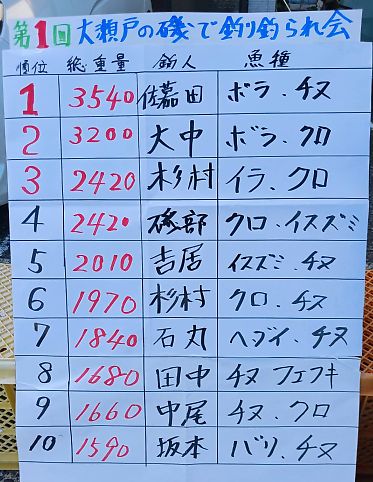 第1回大瀬戸の磯で釣り釣られ会
順位 総重量 釣人 魚種
1 3540 佐嘉田 ボラ、チヌ
2 3200 大中 ボラ、クロ
3 2420 杉村 イラ、クロ
4 2420 磯部 クロ、イスズミ
5 2010 吉居 イスズミ、チヌ
6 1970 杉村 クロ、チヌ
7 1840 石丸 ヘダイ、チヌ
8 1680 田中 チヌ フエフキ
9 1660 中尾 チヌ、クロ
10 1590 坂本 バリ、チヌ